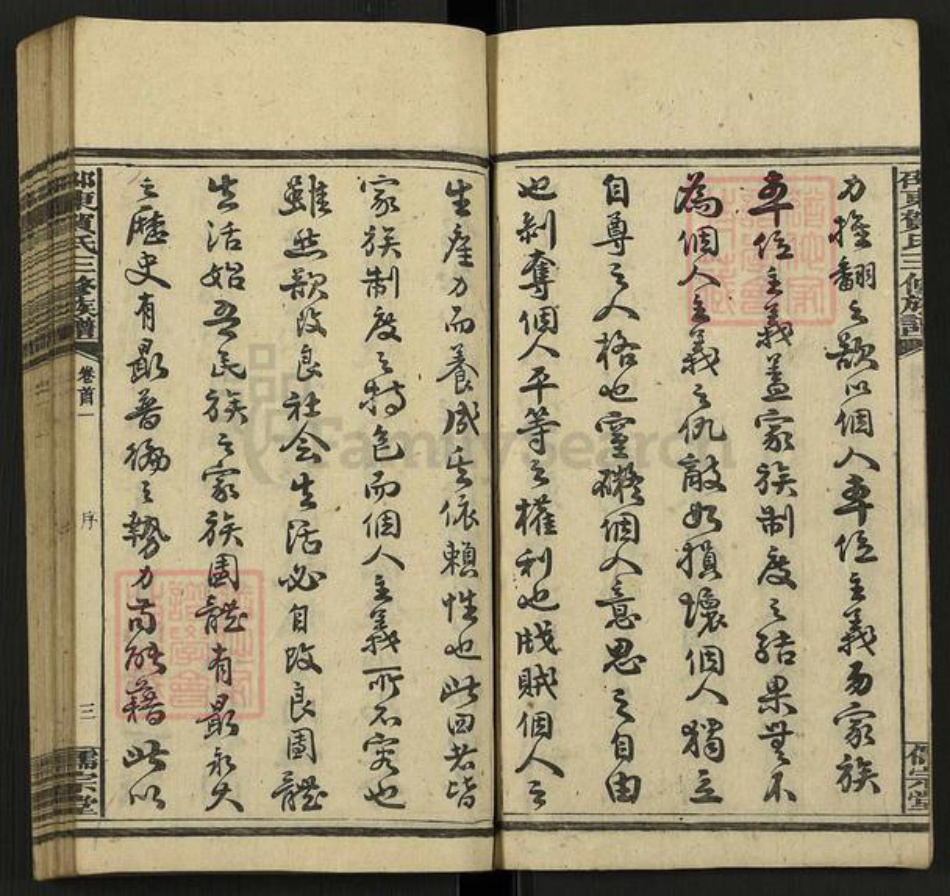 邵東賀氏三修族譜
儒宗堂
力推翻之欲以個人單位主義易家族
單位主義蓋家族制度之結果無不
為個人主義之仇敵如損壞個人獨立
自尊之人格也窒礙個人意思之自由
也剝奪個人平等之權利也戕賊個人之
生產力而養成其依賴性也此四者皆
家族制度之特色而個人主義所不容也
雖然欲改良社会生活必自改良團體
生活始吾民族之家族團體有最永久
之歷史有最普徧之勢力苟能藉此以
邵東賀氏三修族譜
卷首一
序
三
儒宗堂
FamilySearch